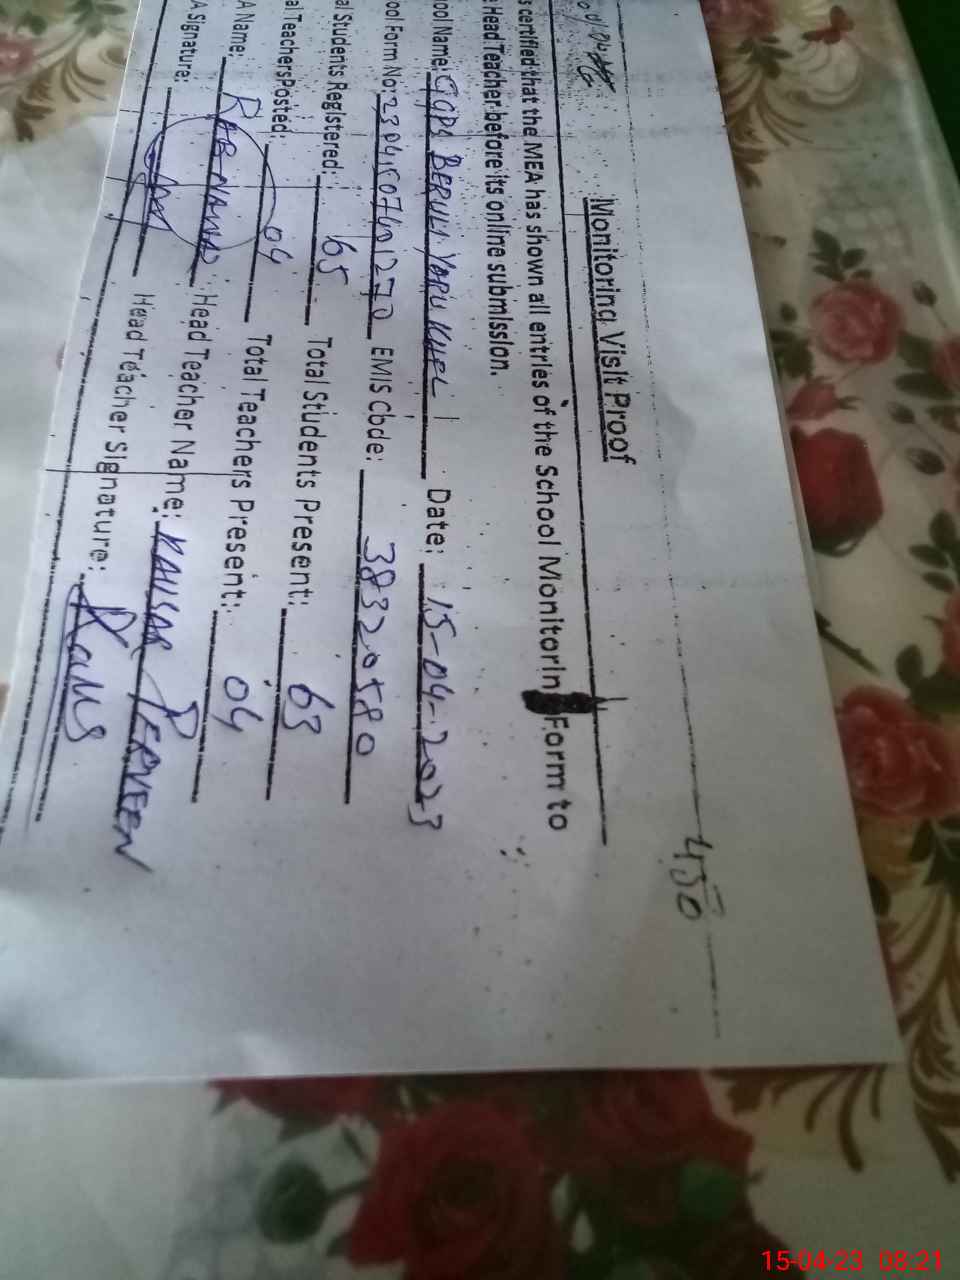 450
Monitoring Visit Proof
s certified that the MEA has shown all entries of the School Monitorin Form to
Head Teacher before its online submission.
ool Name: GGPS BERULI Date: 15-04-2023
ool Form No: EMIS Code: 38320580
al Students Registered: 65 Total Students Present: 63
al Teachers Posted: 04 Total Teachers Present: 04
A Name: RAB NAWAZ Head Teacher Name: KAUSAR PERVEEN
A Signature: Head Teacher Signature: Kaus
15-04-23 08:21